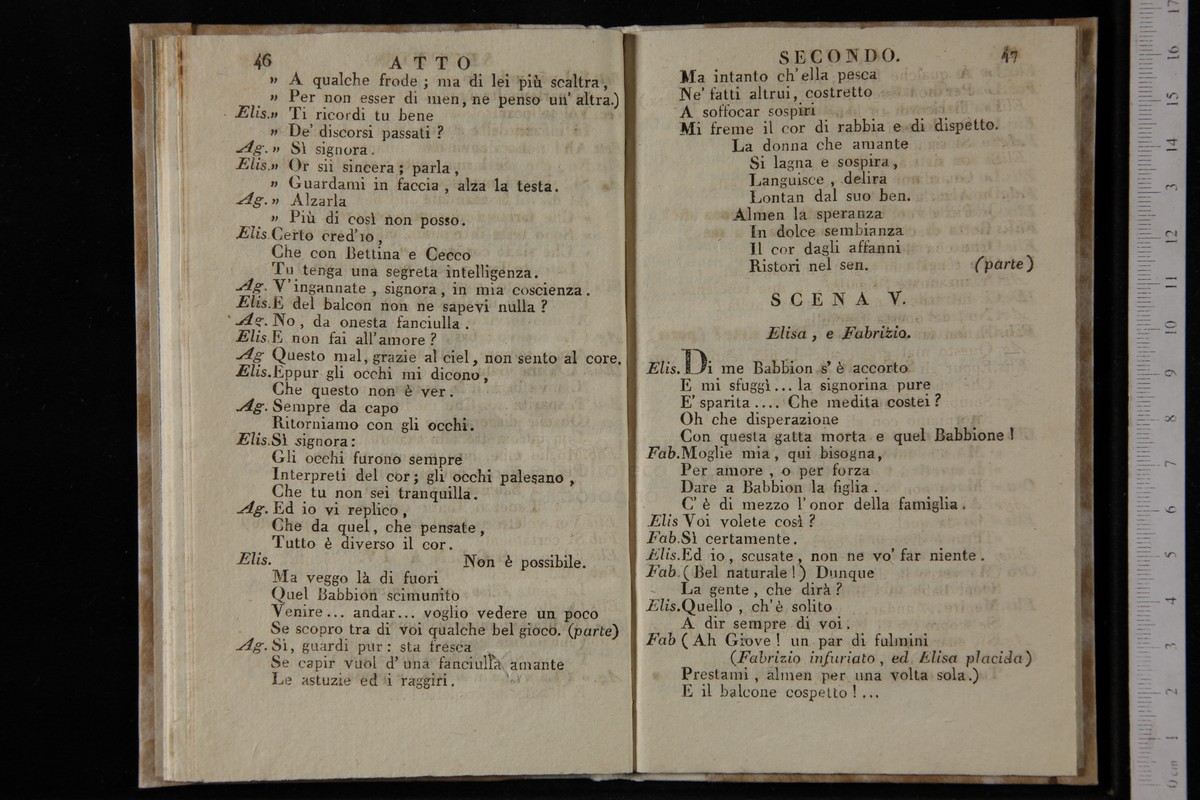 46 ATTO
» A qualche frode ; ma di lei più scaltra,
» Per non esser di men, ne penso un' altra.)
Elis.» Ti ricordi tu bene
» De' discorsi passati ?
Ag. » Sì signora.
Elis.» Or sii sincera ; parla,
» Guardami in faccia , alza la testa.
Ag. » Alzarla
» Più di così non posso.
Elis Certo cred'io,
Che con Bettina e Cecco
Tu tenga una segreta intelligenza.
Ag. V'ingannate , signora, in mia coscienza.
Elis.E del balcon non ne sapevi nulla ?
Ag. No, da onesta fanciulla.
Elis.E non fai all'amore ?
Ag Questo mal, grazie al ciel, non sento al core.
Elis.Eppur gli occhi mi dicono,
Che questo non è ver.
Ag. Sempre da capo
Ritorniamo con gli occhi.
Elis.Sì signora:
Gli occhi furono sempre
Interpreti del cor; gli occhi palesano ,
Che tu non sei tranquilla.
Ag. Ed io vi replico,
Che da quel, che pensate,
Tutto è diverso il cor.
Elis. Non è possibile.
Ma veggo là di fuori
Quel Babbion scimunito
Venire... andar... voglio vedere un poco
Se scopro tra di voi qualche bel gioco. (parte)
Ag. Sì, guardi pur: sta fresca
Se capir vuol d'una fanciulla amante
Le astuzie ed i raggiri.
SECONDO. 47
Ma intanto ch'ella pesca
Ne' fatti altrui, costretto
A soffocar sospiri
Mi freme il cor di rabbia e di dispetto.
La donna che amante
Si lagna e sospira,
Languisce , delira
Lontan dal suo ben.
Almen la speranza
In dolce sembianza
Il cor dagli affanni
Ristori nel sen. (parte)
SCENA V.
Elisa , e Fabrizio.
Elis. Di me Babbion s' è accorto
E mi sfuggì... la signorina pure
E' sparita .... Che medita costei ?
Oh che disperazione
Con questa gatta morta e quel Babbione !
Fab.Moglie mia , qui bisogna,
Per amore , o per forza
Dare a Babbion la figlia .
C' è di mezzo l'onor della famiglia.
Elis Voi volete così ?
Fab.Sì certamente.
Elis.Ed io, scusate, non ne vo' far niente.
Fab.( Bel naturale !) Dunque
La gente , che dirà ?
Elis.Quello , ch'è solito
A dir sempre di voi.
Fab ( Ah Giove ! un par di fulmini
(Fabrizio infuriato , ed Elisa placida)
Prestami , almen per una volta sola.)
E il balcone cospetto ! ...
0 cm 1 2 3 4 5 6 7 8 9 10 11 12 13 14 15 16 17